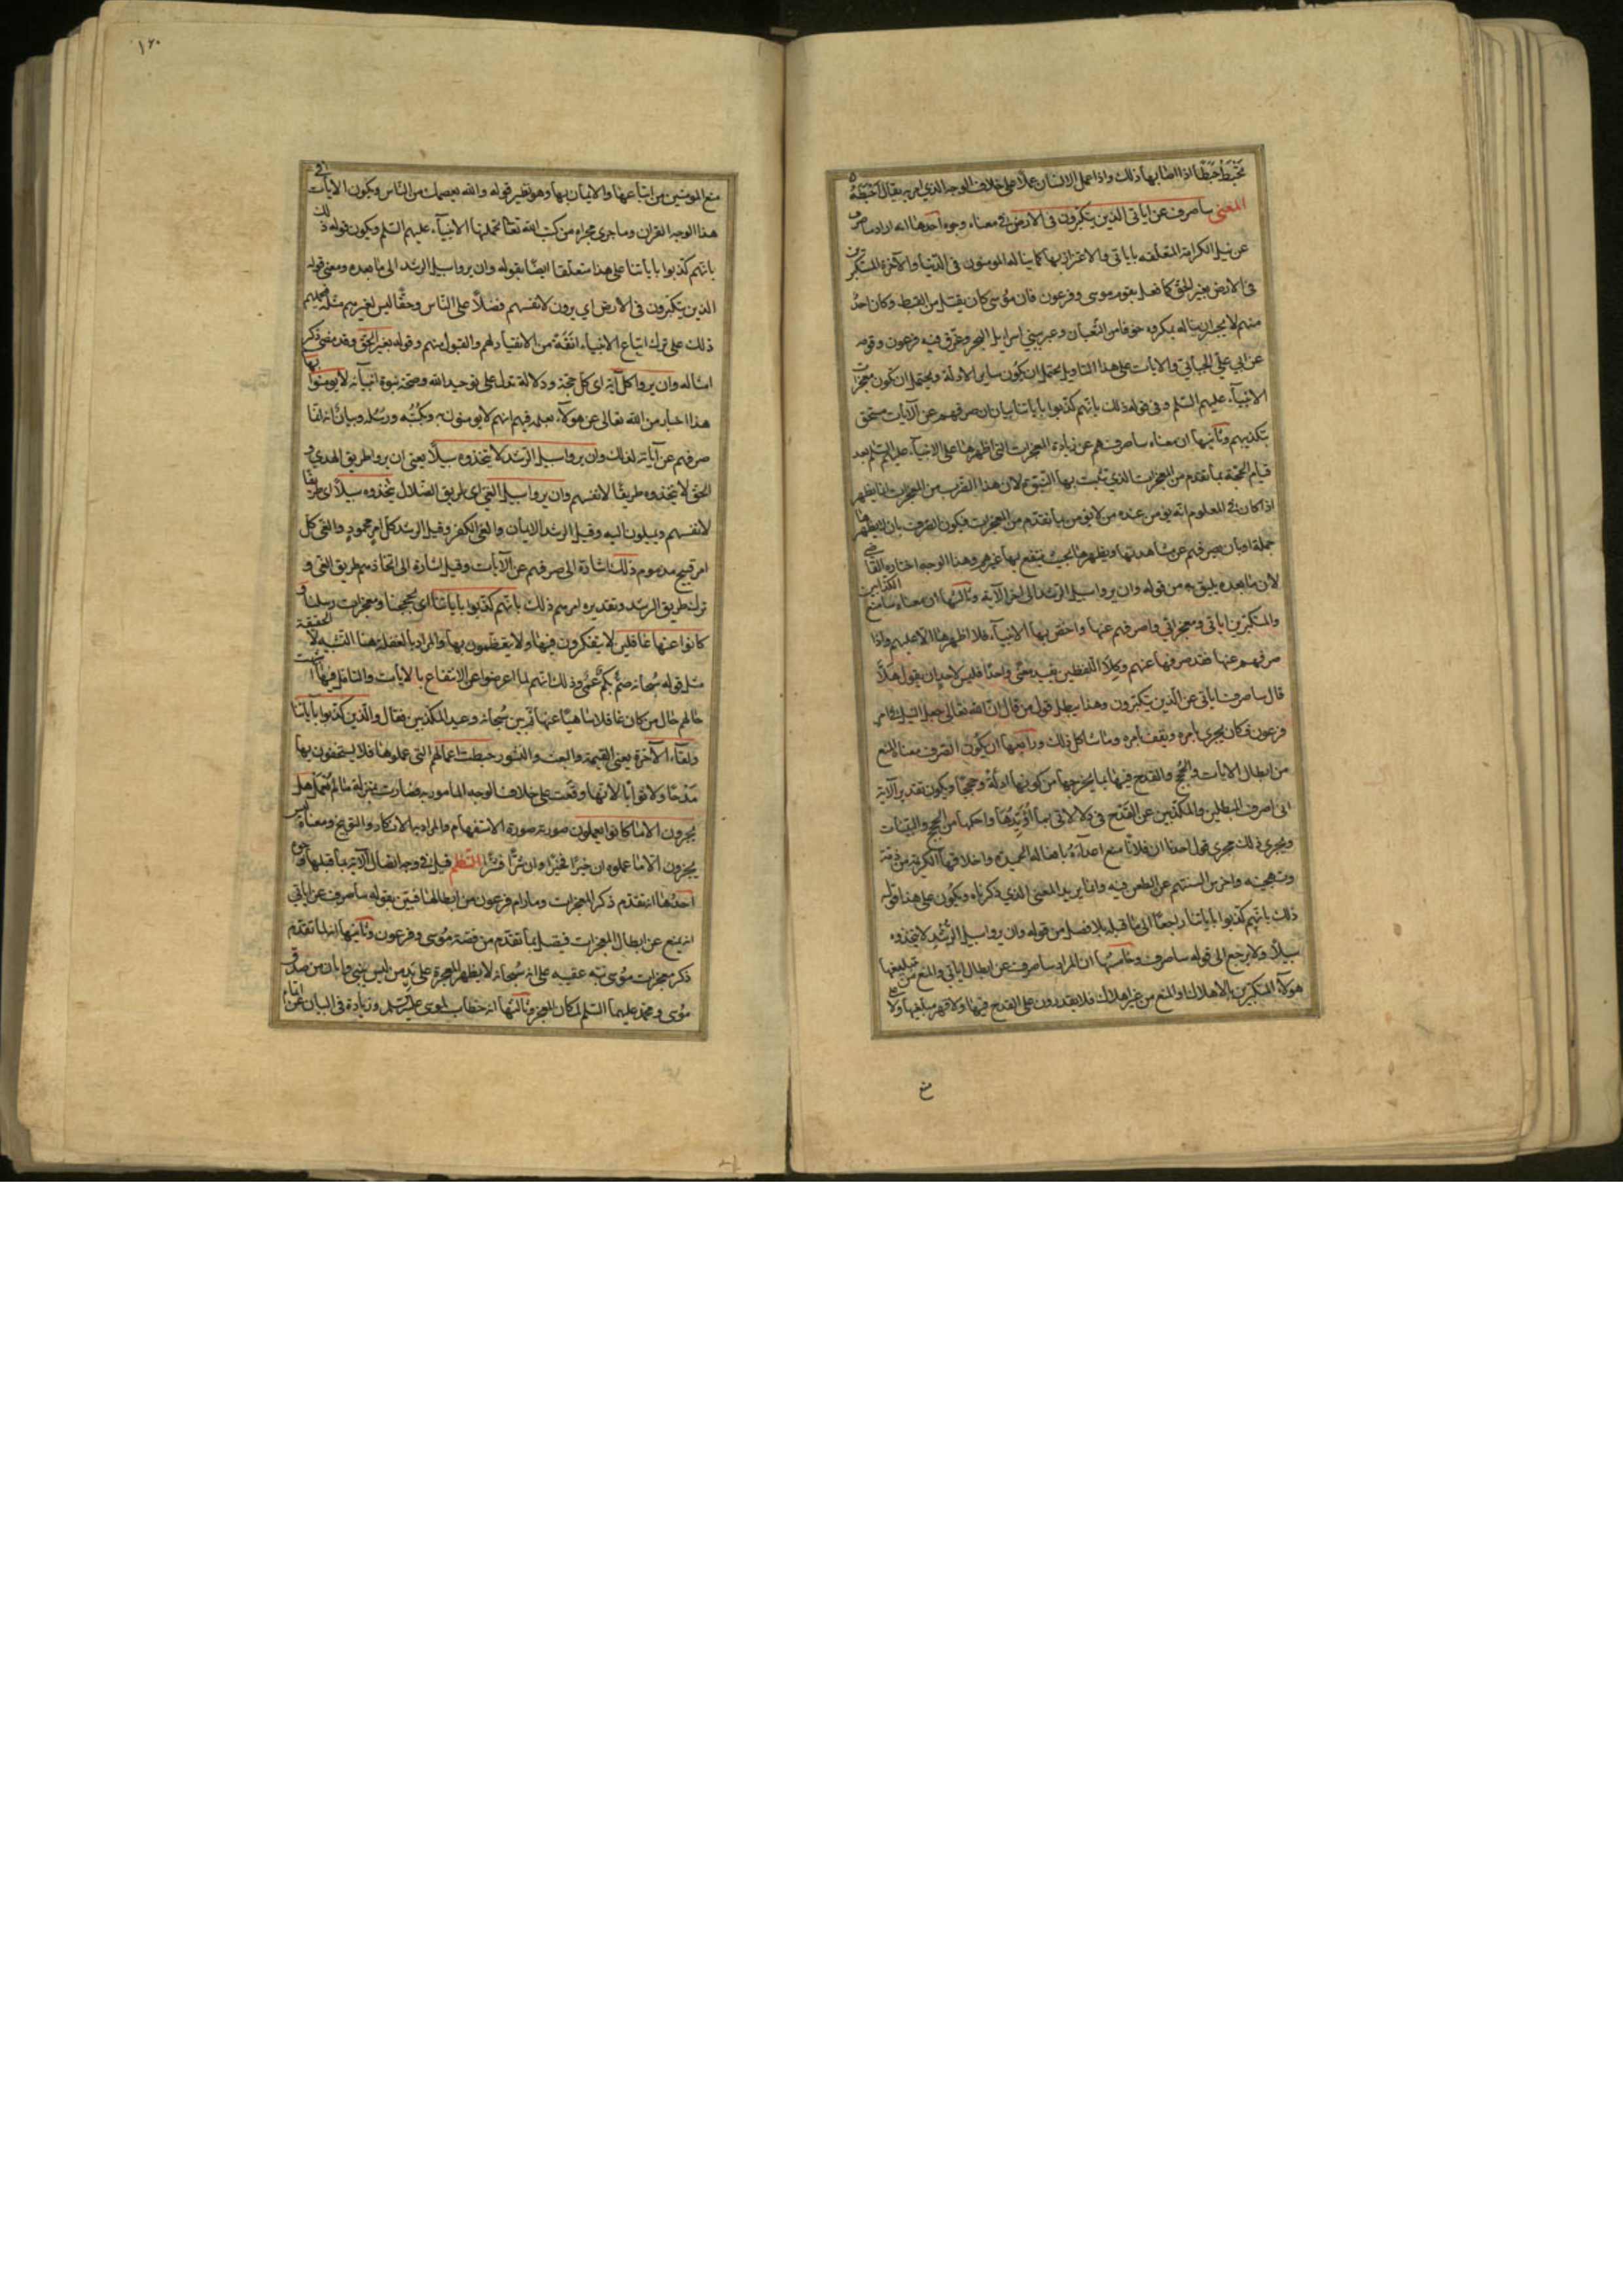 تحبط حبطا اذا اصابها ذلك واذا عمل الانسان عملا على خلاف الوجه الذي امر به يقال احبطه
المعنى ساصرف عن اياتي الذين يتكبرون في الارض في معناه وجوه احدها انه اراد ساصرف
عن نيل الكرامة المتعلقه باياتي والاعتزاز بها كما يناله المومنون في الدنيا والآخرة المستكبرين
في الارض بغير الحق كما فعل بقوم موسى وفرعون فان موسى كان يقتل من القبط وكان احد
منهم لا يجسر ان يناله بمكروه خوفا من الثعبان وعبر ببني اسرايل البحر وغرق فيه فرعون وقومه
عن ابي علي الجبائي والآيات على هذا التاويل يحتمل ان يكون ساير الادلة ويحتمل ان تكون معجزات
الانبيآء عليهم السلم وفي قوله ذلك بانهم كذبوا باياتنا بيان ان صرفهم عن الآيات مستحق
بتكذيبهم وثانيها ان معناه ساصرفهم عن زيادة المعجزات التي اظهرها على الانبيآء عليهم السلم بعد
قيام الحجة بما تقدم من المعجزات الذي تثبت بها النبوة لان هذا الضرب من المعجزات انما يظهر
اذا كان في المعلوم انه يومن عنده من لا يومن بما تقدم من المعجزات فيكون الصرف بان لا يظهرها
جملة او بان يصرفهم عن مشاهدتها ويظهرها بحيث ينتفع بها غيرهم وهذا الوجه اختاره القاضي
لان ما بعده يليق به من قوله وان يروا سبيل الرشد الى اخر الآية وثالثها ان معناه سامنع الكذابين
والمتكبرين اياتي ومعجزاتي واصرفهم عنها واخص بها الانبيآء فلا اظهرها الا عليهم واذا
صرفهم عنها فقد صرفها عنهم وكلا اللفظين يفيد معنى واحدا فليس لاحد ان يقول هلا
قال ساصرف اياتي عن الذين يتكبرون وهذا يبطل قول من قال ان الله تعالى جعل النيل في امر
فرعون فكان يجري بامره ويقف بامره وما شاكل ذلك ورابعها ان يكون الصرف معناه المنع
من ابطال الايات والحجج والقدح فيها بما يخرجها من كونها ادلة وحججا ويكون تقدير الآية
اني اصرف المبطلين والمكذبين عن القدح في دلالاتي بما اؤيدها واحكمها من الحجج والبينات
ويجري ذلك مجرى قول احدنا ان فلانا منع اعداءه بافعاله الحميدة واخلاقه الكريمة من ذمه
وتهجينه واخرس السنتهم عن الطعن فيه وانما يريد المعنى الذي ذكرناه ويكون على هذا قوله
ذلك بانهم كذبوا باياتنا راجعا الى ما قبله بلا فصل من قوله وان يروا سبيل الرشد لا يتخذوه
سبيلا ولا يرجع الى قوله ساصرف وخامسها ان المراد ساصرف عن ابطال اياتي والمنع من تبليغها
هولآء المتكبرين بالاهلاك او المنع من غير اهلاك فلا يقدرون على القدح فيها ولا قهر مبلغيها ولا على
منع المومنين من اتباعها والايمان بها وهو نظير قوله والله يعصمك من الناس ويكون الايات في
هذا الوجه القران وما جرى مجراه من كتب الله تعالى تحملتها الانبيآء عليهم السلم ويكون قوله ذلك
بانهم كذبوا باياتنا على هذا متعلقا ايضا بقوله وان يروا سبيل الرشد الى ما بعده ومعنى قوله
الذين يتكبرون في الارض اي يرون لانفسهم فضلا على الناس وحقا ليس لغيرهم مثله فيحملهم
ذلك على ترك اتباع الانبياء انفة من الانقياد لهم والقبول منهم وقوله بغير الحق وقد مضى ذكر
امثاله وان يروا كل آية اى كل حجة ودلالة تدل على توحيد الله وصحة نبوة انبيآئه لا يومنوا بها
هذا اخبار من الله تعالى عن هولآء بعلمه فيهم انهم لا يومنون به وبكتبه ورسله وبيان انه انما
صرفهم عن آياته لذلك وان يروا سبيل الرشد لا يتخذوه سبيلا يعنى ان يروا طريق الهدى و
الحق لا يتخذوه طريقا لانفسهم وان يروا سبيل الغي اى طريق الضلال يتخذوه سبيلا اى طريقا
لانفسهم ويميلون اليه وقيل الرشد الايمان والغى الكفر وقيل الرشد كل امر محمود والغى كل
امر قبيح مذموم ذلك اشارة الى صرفهم عن الآيات وقيل اشارة الى اتخاذهم طريق الغى و
ترك طريق الرشد وتقديره امرهم ذلك بانهم كذبوا باياتنا اى بحججنا ومعجزات رسلنا و
كانوا عنها غافلين لا يتفكرون فيها ولا يتعظمون بها والمراد بالغفلة هنا التشبيه لا الحقيقة
مثل قوله سبحانه صم بكم عمى وذلك انهم لما اعرضوا عن الانتفاع بالايات والتامل فيها اشبهت
حالهم حال من كان غافلا ساهيا عنها ثم بين سبحانه وعيد المكذبين فقال والذين كذبوا بآياتنا
ولقآء الآخرة يعنى القيمة والبعث والنشور حبطت اعمالهم التى عملوها فلا يستحقون بها
مدحا ولا ثوابا لانها وقعت على خلاف الوجه المامور به فصارت بمنزلة ما لم تعمل هل
يجزون الا ما كانوا يعملون صورته صورة الاستفهام والمراد به الانكار والتوبيخ ومعناه ليس
يجزون الا ما عملوه ان خيرا فخيرا وان شرا فشرا النظم قيل في وجه اتصال الآية بما قبلها وجوه
احدها انه تقدم ذكر المعجزات وما رام فرعون من ابطالها فبين بقوله ساصرف عن اياتي
انه يمنع عن ابطال المعجزات فيتصل بما تقدم من قصة موسى وفرعون وثانيها انه لما تقدم
ذكر معجزات موسى نبه عقبه على انه سبحانه لا يظهر المعجزة على يد من ليس بنبى وابان من صدق
موسى ومحمد عليهما السلم لمكان المعجز وثالثها انه خطاب لموسى عليه السلم وزيادة فى البيان عن